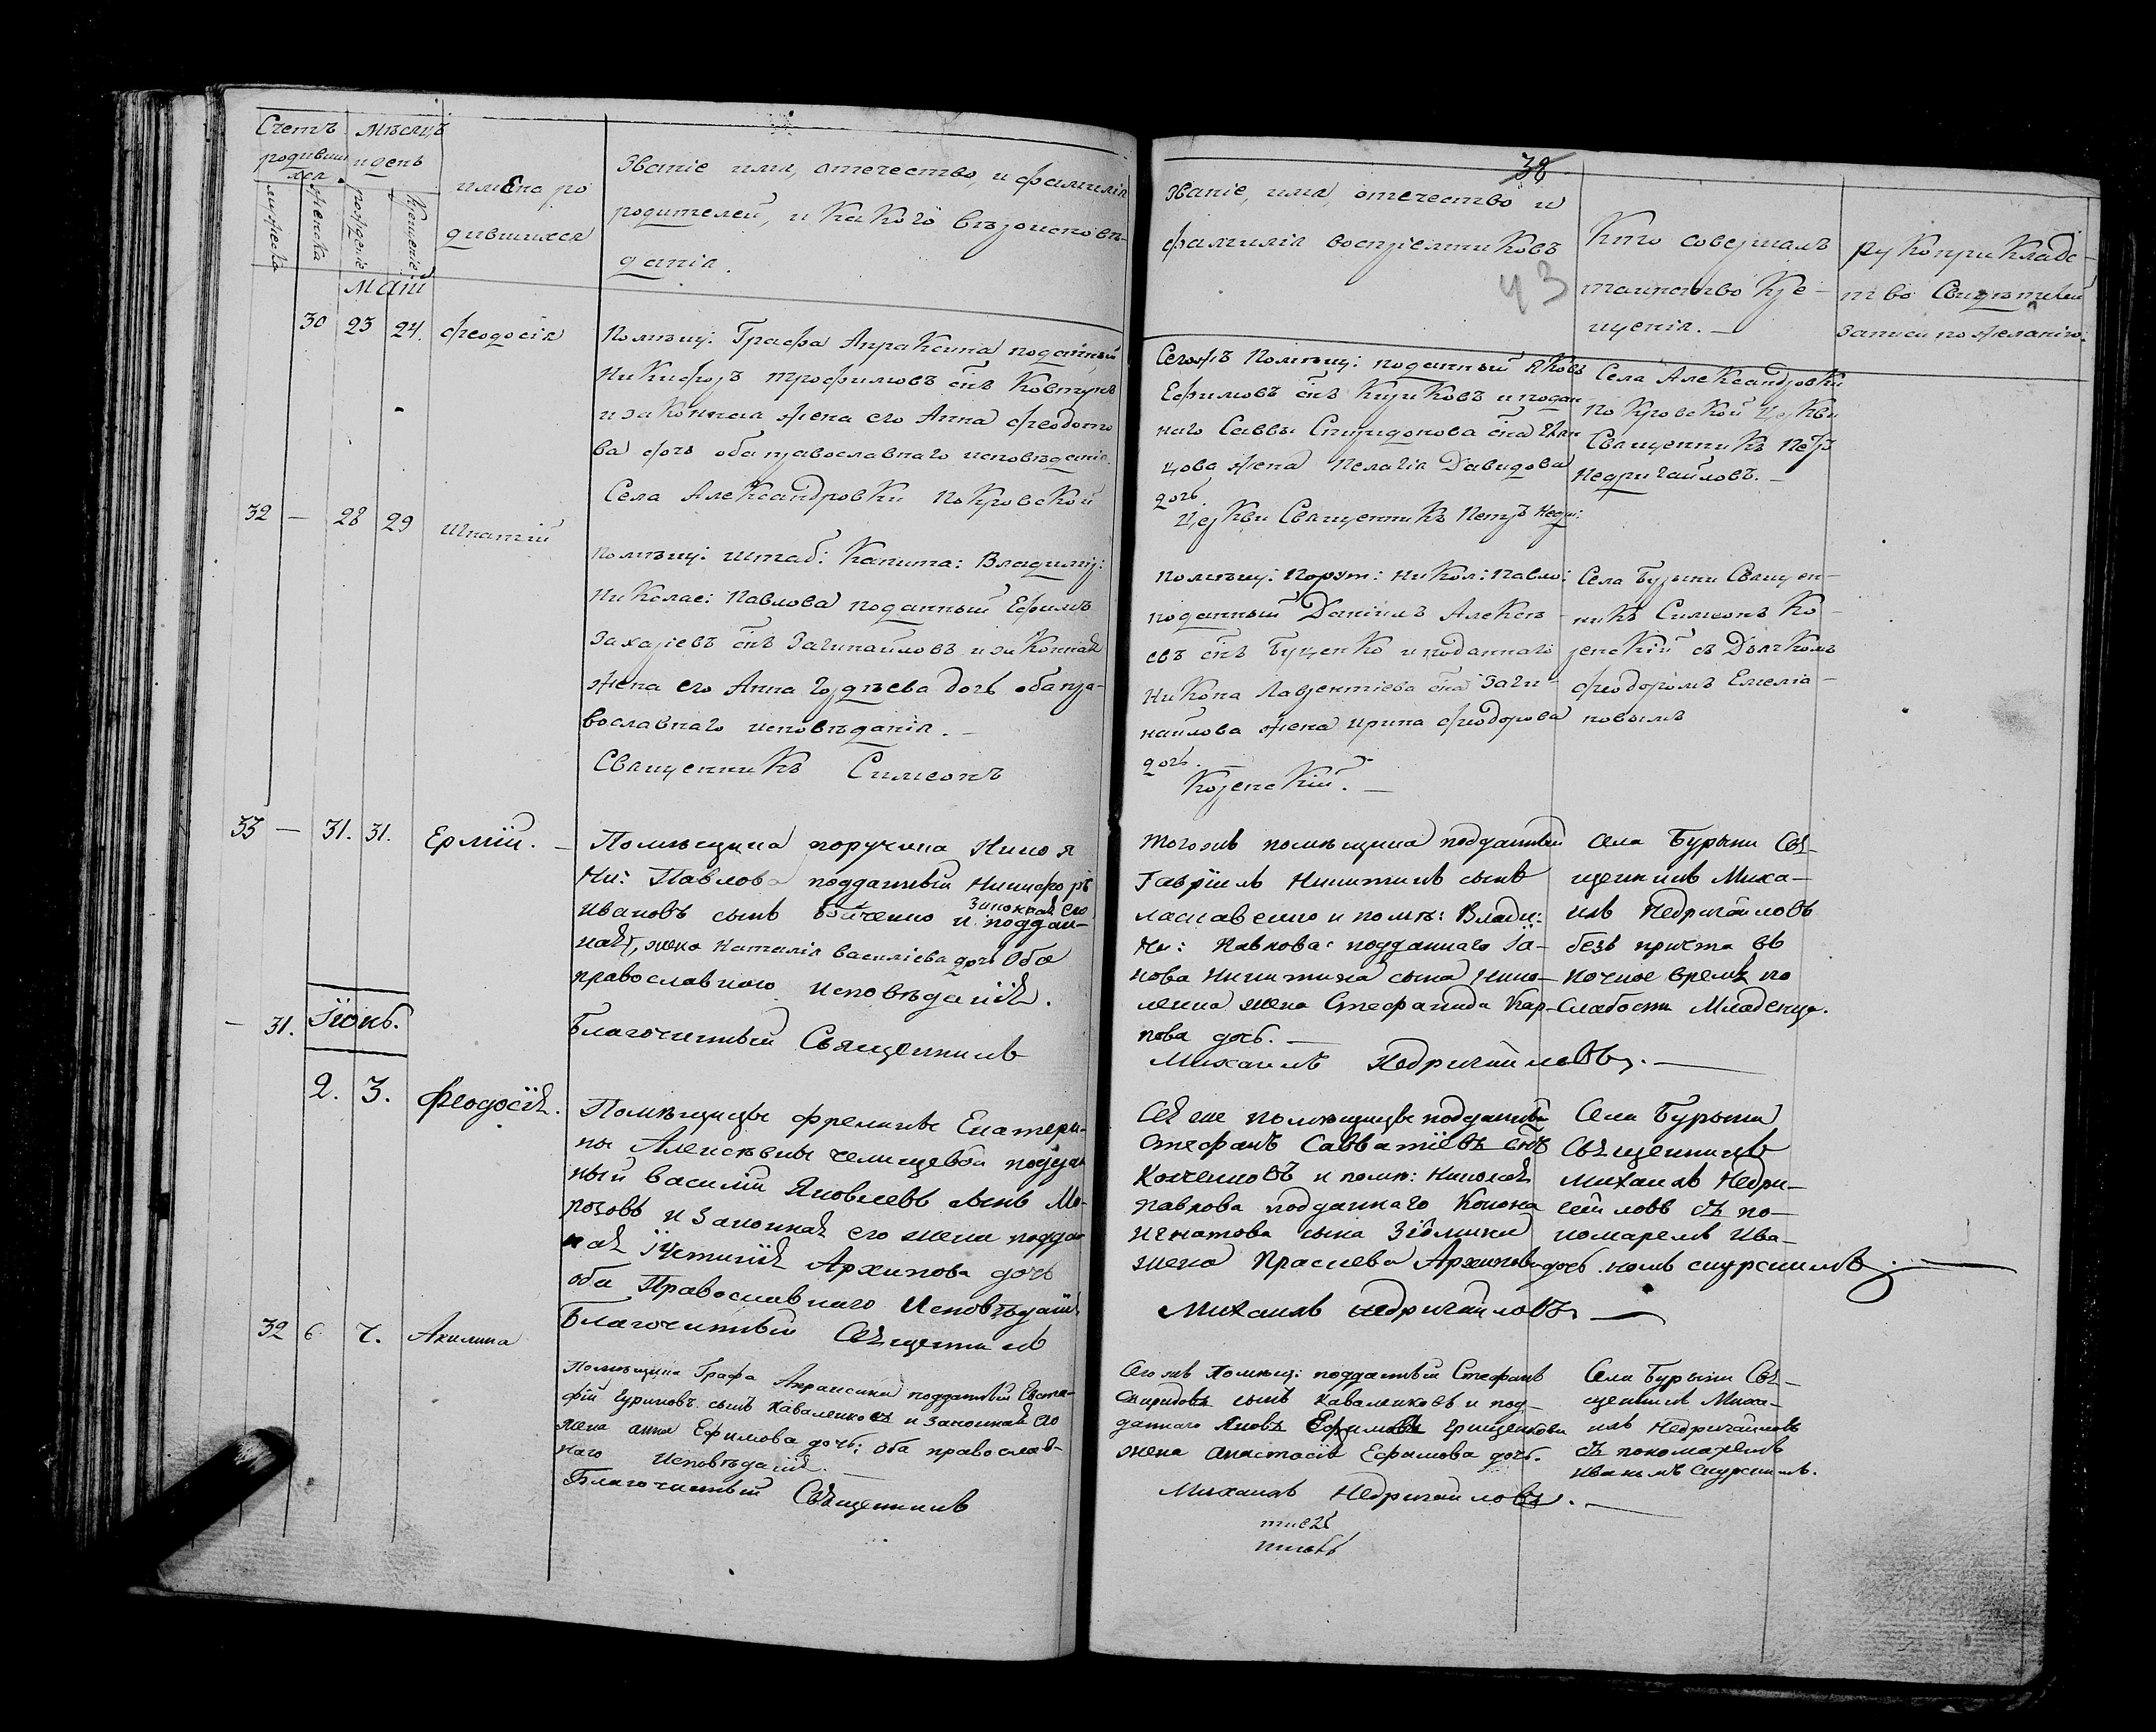 Счетъ родившихся
мужеска
женска
Мѣсяцъ и день
рожденіе
крещеніе
имена родившихся
Званіе имя, отечество, и фамилія
родителей, и какого вѣроисповѣ-
данія.
38
43
Званіе, имя, отечество и
фамилія воспріемниковъ
Кто совершалъ
таинство Кре-
щенія.
рукоприкладс-
тво Свидѣтелей
записи по желанію.
Маій
30 23 24. Феодосія
Помѣщ: Графа Апраксина поданный
Никифоръ Трофимовъ снъ Ковтунъ
и законная жена его Анна Феодото
ва дочь оба православнаго исповѣданія.
Села Александровки Покровской
Сегожъ Помѣщ: поданный Яковъ
Ефимовъ снъ Кириковъ и подан
наго Саввы Спиридонова сна
цова жена Пелагія Давидова
дочь.
Церкви Священникъ Петръ Недри:
Села Александровки
Покровской Церкви
Священникъ Петръ
Недригайловъ.
32 — 28 29 Игнатій
Помѣщ: штаб: Капита: Владимір:
Николае: Павлова поданный Ефимъ
Захаріевъ снъ Загинайловъ и законная
жена его Анна Гордѣева дочь оба пра-
вославнаго исповѣданія.
Священникъ Симеонъ
Помѣщ: Порут: Никол: Павло:
поданный Даніилъ Алексѣ-
евъ снъ Буценко и поданнаго
Никона Лаврентіева сна Заги-
найлова жена Ирина Феодорова
дочь.
Коренскій.
Села Бурыни Священ-
никъ Симеонъ Ко-
ренскій съ Дьячкомъ
Феодоромъ Емеліа-
новымъ
33 — 31. 31. Ермій.
Помѣщика поручика Никола
Ни: Павлова подданный Никифоръ
Ивановъ сынъ Бойченко и законная его поддан-
ная, жена Наталія Василіева дочь Оба
православного Исповѣданія.
Благочинный Священникъ
Тогожъ помѣщика подданный
Гавріилъ Никитинъ сынъ
Ни: Павлова подданнаго Іа-
кова Никитина сына Нико-
ленка жена Стефанида Кар-
пова дочь.
Михаилъ Недригайловъ.
Села Бурыни Свя-
щенникъ Миха-
илъ Недригайловъ
безъ причта въ
Ночное время по
Слабости Младенца.
Іюнь.
— 31. 2. 3. Феодосія.
Помѣщицы фрелины Екатери-
ны Алексѣвны Челищевой поддан
ный Василій Яковлевъ сынъ Мо-
розовъ и Законная его жена поддан
ная Іустинія Архипова дочь
оба Православнаго Исповѣданія
Благочинный Священникъ
Сея же помѣщицы подданный
Стефанъ Савватіевъ снъ
и помѣ: Николая
Павлова подданнаго Конона
Игнатова сына
жена Прасцева Архипова дочь.
Михаилъ Недригайловъ.
Села Бурыни
Священникъ
Михаилъ Недри-
гайловъ съ по-
номаремъ Ива-
номъ Скурскимъ.
32 6 7. Акилина
Помѣщика Графа Апраксина подданный Евста-
фій сынъ Каваленковъ и Законная его
жена Анна Ефимова дочь: Оба православ-
наго Исповѣданія.
Благочинный Священникъ
Сегожъ Помѣщ: подданный Стефанъ
Спиридовъ сынъ Каваленковъ и под-
даннаго Яковъ Ефимовъ Грищенкова
жена Анастасія Ефимова дочь.
Михаилъ Недригайловъ.
Села Бурыни Свя-
щенникъ Миха-
илъ Недригайловъ
съ пономаремъ
Иваномъ Скурскимъ.